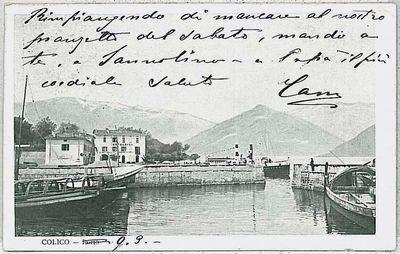 Rimpiangendo di mancare al nostro
pranzetto del sabato, mando a
te, a Sannolino – a Papà il più
cordiale saluto
COLICO – 9.3.–